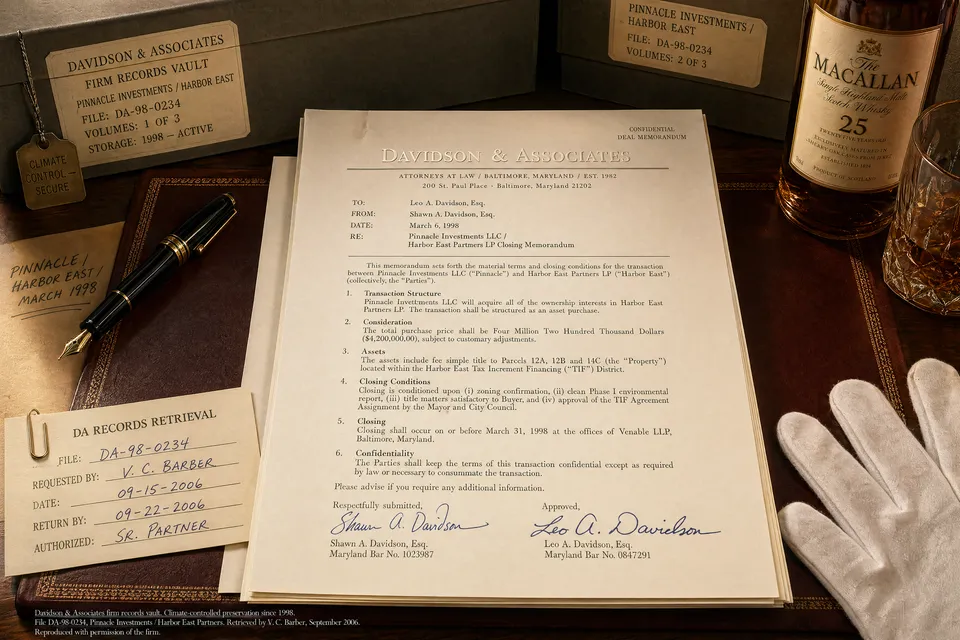 DAVIDSON & ASSOCIATES
FIRM RECORDS VAULT
PINNACLE INVESTMENTS / HARBOR EAST
FILE: DA-98-0234
VOLUMES: 1 OF 3
STORAGE: 1998 – ACTIVE
CLIMATE
CONTROL –
SECURE
PINNACLE INVESTMENTS /
HARBOR EAST
FILE: DA-98-0234
VOLUMES: 2 OF 3
The
MACALLAN
Single Highland Malt
Scotch Whisky
25
TWENTY FIVE YEARS OLD
EXCLUSIVELY MATURED IN
PRODUCT OF SCOTLAND
PINNACLE /
HARBOR EAST /
MARCH 1998
DA RECORDS RETRIEVAL
FILE: DA-98-0234
REQUESTED BY: V. C. BARBER
DATE: 09-15-2006
RETURN BY: 09-22-2006
AUTHORIZED: SR. PARTNER
CONFIDENTIAL
DEAL MEMORANDUM
DAVIDSON & ASSOCIATES
ATTORNEYS AT LAW / BALTIMORE, MARYLAND / EST. 1982
200 St. Paul Place · Baltimore, Maryland 21202
TO: Leo A. Davidson, Esq.
FROM: Shawn A. Davidson, Esq.
DATE: March 6, 1998
RE: Pinnacle Investments LLC /
Harbor East Partners LP Closing Memorandum
This memorandum sets forth the material terms and closing conditions for the transaction
between Pinnacle Investments LLC (“Pinnacle”) and Harbor East Partners LP (“Harbor East”)
(collectively, the “Parties”).
1. Transaction Structure
Pinnacle Investments LLC will acquire all of the ownership interests in Harbor East
Partners LP. The transaction shall be structured as an asset purchase.
2. Consideration
The total purchase price shall be Four Million Two Hundred Thousand Dollars
($4,200,000.00), subject to customary adjustments.
3. Assets
The assets include fee simple title to Parcels 12A, 12B and 14C (the “Property”)
located within the Harbor East Tax Increment Financing (“TIF”) District.
4. Closing Conditions
Closing is conditioned upon (i) zoning confirmation, (ii) clean Phase I environmental
report, (iii) title matters satisfactory to Buyer, and (iv) approval of the TIF Agreement
Assignment by the Mayor and City Council.
5. Closing
Closing shall occur on or before March 31, 1998 at the offices of Venable LLP,
Baltimore, Maryland.
6. Confidentiality
The Parties shall keep the terms of this transaction confidential except as required
by law or necessary to consummate the transaction.
Please advise if you require any additional information.
Respectfully submitted,
Shawn A. Davidson
Shawn A. Davidson, Esq.
Maryland Bar No. 1023987
Approved,
Leo A. Davidson
Leo A. Davidson, Esq.
Maryland Bar No. 0847291
Davidson & Associates firm records vault. Climate-controlled preservation since 1998.
File DA-98-0234, Pinnacle Investments / Harbor East Partners. Retrieved by V. C. Barber, September 2006.
Reproduced with permission of the firm.